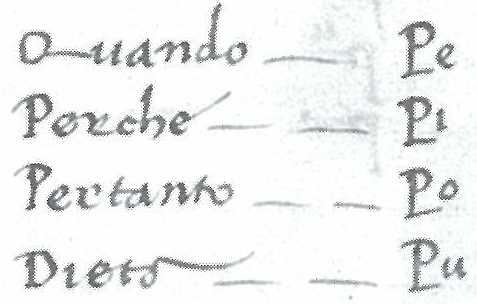 Quando — — Pe
Perche — — Pi
Pertanto — — Po
Dieto — — Pu